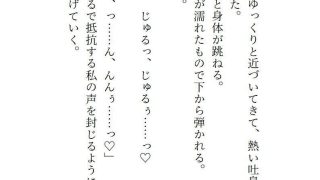 ゆっくりと近づいてきて、熱い吐息
た。
と身体が跳ねる。
が濡れたもので下から弾かれる。
。
じゅるっ、じゅるぅ……っ♡
、っ……ん、んんぅ……っ♡」
るで抵抗する私の声を封じるように
げていく。